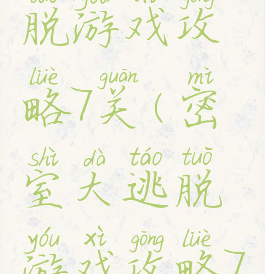 脱游戏攻
lüè guān mì
略7关(密
shì dà táo tuō
室大逃脱
yóu xì gōng lüè
游戏攻略7